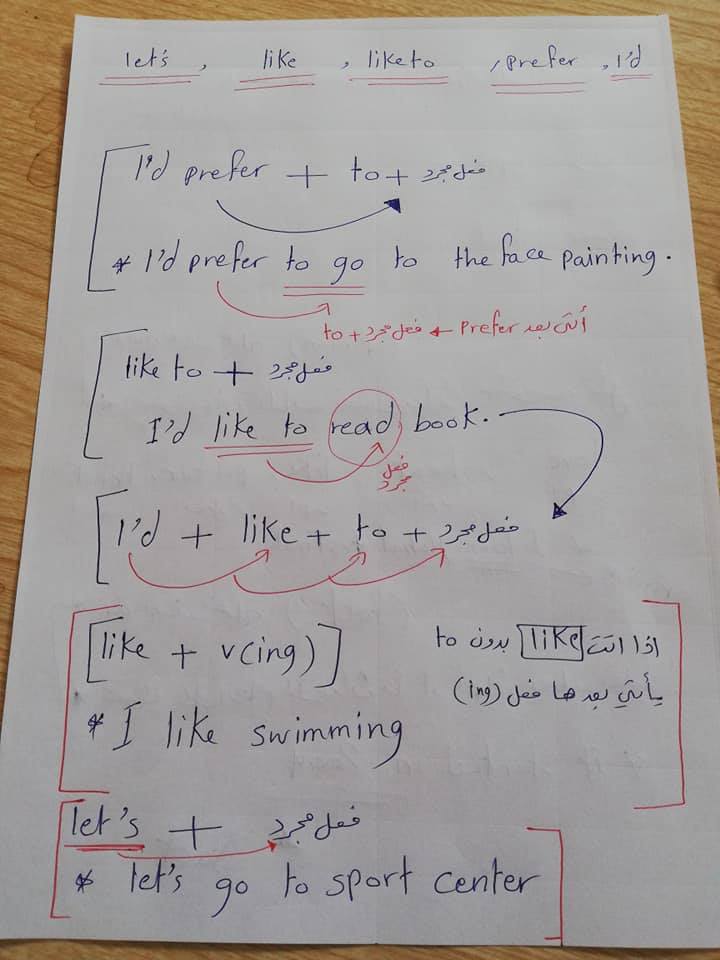 let's, like, like to, prefer, I'd
I'd prefer + to + فعل مجرد
* I'd prefer to go to the face painting.
أتى بعد Prefer ← فعل مجرد + to
like to + فعل مجرد
I'd like to read book.
فعل
مجرد
I'd + like + to + فعل مجرد
[like + v(ing)]
اذا اتت like بدون to
يأتي بعدها فعل (ing)
* I like swimming
let's + فعل مجرد
* let's go to sport center